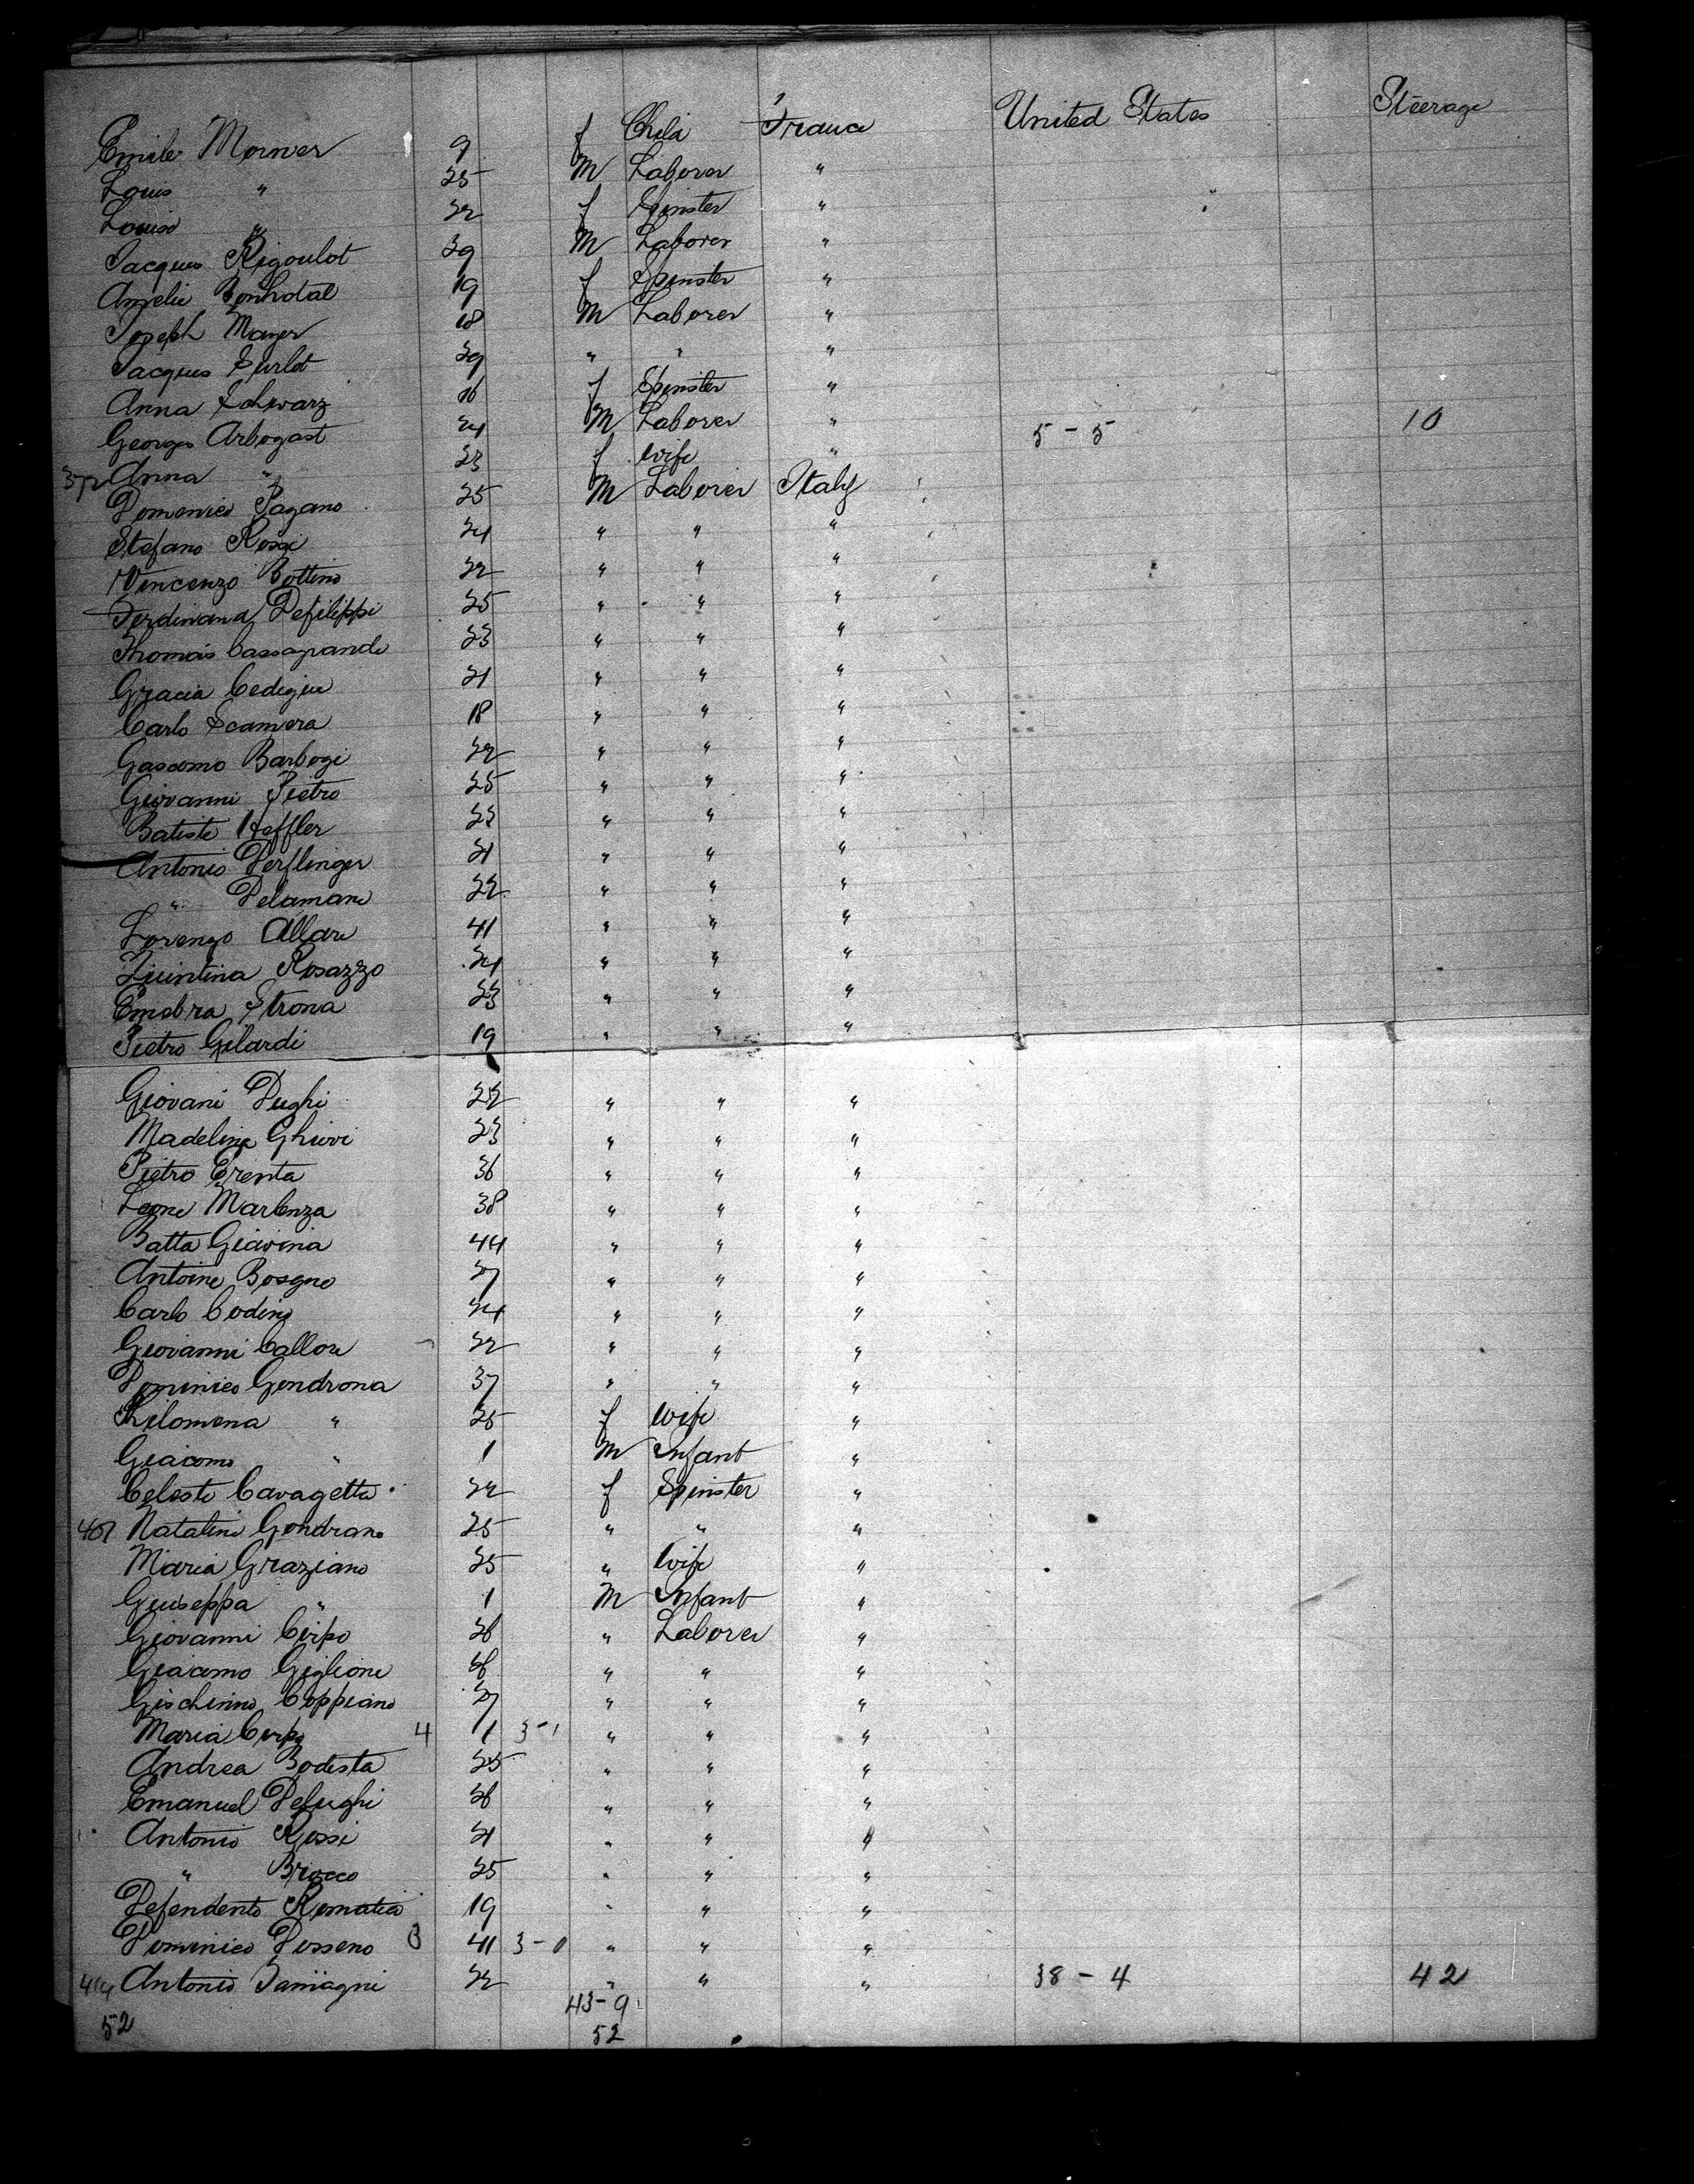 Emile Morner 9 f Child France United States Steerage
Louis " 25 M Laborer "
Louise " 22 f Spinster "
Jacques Rigoulot 29 M Laborer "
Amelie Bonhotal 19 f Spinster "
Joseph Mayer 18 M Laborer "
Jacques Surlot 29 " " "
Anna Schwarz 16 f Spinster "
Georges Arbogast 24 M Laborer " 5-5 10
372 Anna " 23 f Wife "
Domenico Pagano 25 M Laborer Italy
Stefano Rossi 24 " " "
Vincenzo Bottino 22 " " "
Ferdinand Defilippi 25 " " "
Thomas Cassagrande 23 " " "
Gracia 21 " " "
Carlo Scamera 18 " " "
Gascomo Barbogi 22 " " "
Giovanni Pietro 25 " " "
Batiste Heffler 23 " " "
Antonio Derflinger 21 " " "
" Delamane 22 " " "
Lorenzo Allare 41 " " "
Quintina Rosazzo 24 " " "
Emebra Strona 23 " " "
Pietro Gilardi 19 " " "
Giovani Dughi 22 " " "
Madeline Ghiovi 23 " " "
Pietro Crenta 36 " " "
Leone Marlenza 38 " " "
Batta Giavina 44 " " "
Antoine Bosgno 27 " " "
Carlo Codino 24 " " "
Giovanni Callore 22 " " "
Dominico Gendrona 37 " " "
Philomena " 25 f Wife "
Giacomo " 1 M Infant "
Celeste Cavagetta 22 f Spinster "
401 Natalini Gondrano 25 " " "
Maria Graziano 25 " Wife "
Giuseppa " 1 M Infant "
Giovanni Cirpo 26 " Laborer "
Giacomo Giglione " " "
Gischinno Coppiano 27 " " "
Maria Cirpo 4 1 3-1 " " "
Andrea Bodesta 25 " " "
Emanuel Delughi 26 " " "
Antonio Rossi 21 " " "
" Briocco 25 " " "
Defendento Rematia 19 " " "
Dominico Dosseno 3 41 3-0 " " "
414 Antonio Bamagni 22 " " " 38-4 42
52 43-9
52